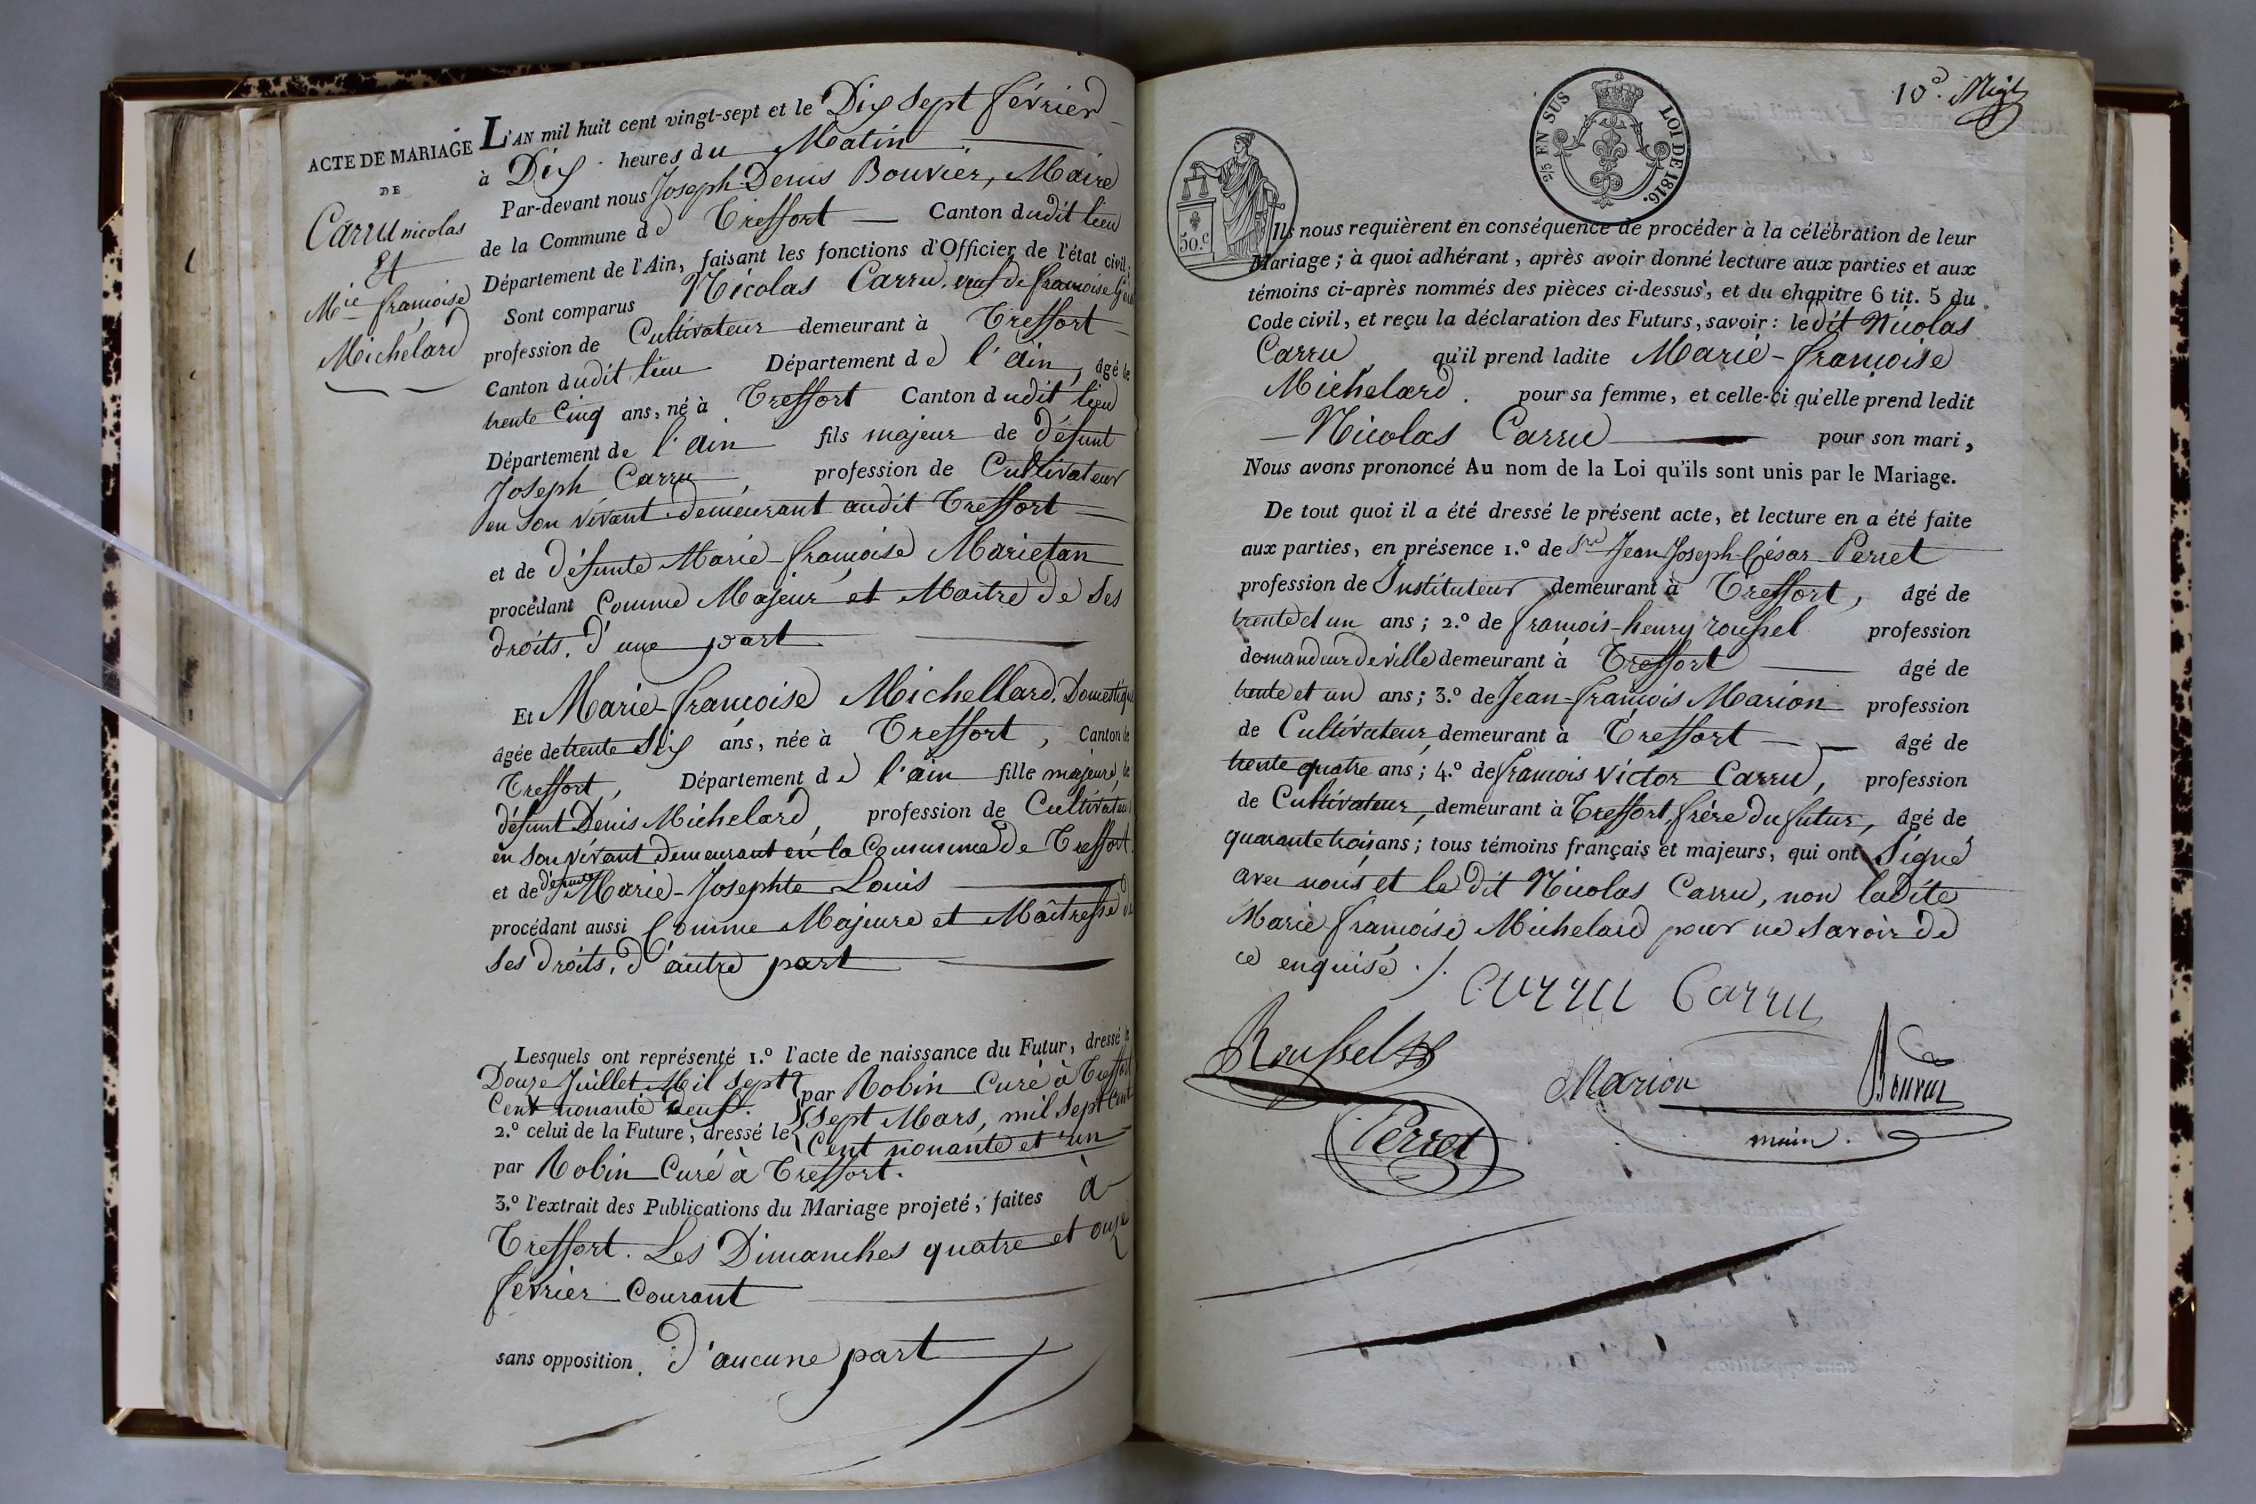 ACTE DE MARIAGE
DE
Carru nicolas
Et
Mie françoise
Michelard
L'AN mil huit cent vingt-sept et le Dix sept février
à Dix heures du Matin
Par-devant nous Joseph-Denis Bouvier, Maire
de la Commune de Treffort Canton dudit lieu
Département de l'Ain, faisant les fonctions d'Officier de l'état civil;
Sont comparus Nicolas Carru, veuf de françoise
profession de Cultivateur demeurant à Treffort
Canton dudit lieu Département de l'ain, âgé de
trente Cinq ans, né à Treffort Canton dudit lieu
Département de l'ain fils majeur de défunt
Joseph Carru, profession de Cultivateur
en son vivant demeurant audit Treffort
et de défunte Marie-françoise Marietan
procédant Comme Majeur et Maitre de ses
droits, d'une part
Et Marie-françoise Michellard, Domestique
âgée de trente Six ans, née à Treffort, Canton de
Treffort, Département de l'ain fille majeure, de
défunt Denis Michelard, profession de Cultivateur
en son vivant demeurant en la Commune de Treffort
et de défunte Marie-Josephte Louis
procédant aussi Comme Majeure et Maîtresse de
ses droits, d'autre part
Lesquels ont représenté 1.º l'acte de naissance du Futur, dressé le
Douze Juillet Mil sept par Robin Curé à Treffort
Cent nonante deux.
2.º celui de la Future, dressé le Sept Mars, mil sept Cent
Cent nonante et un
par Robin Curé à Treffort.
3.º l'extrait des Publications du Mariage projeté, faites à
Treffort. Les Dimanches quatre et onze
février Courant
sans opposition d'aucune part
10e
50.c
2/5 EN SUS
LOI DE 1816.
Ils nous requièrent en conséquence de procéder à la célébration de leur
Mariage; à quoi adhérant, après avoir donné lecture aux parties et aux
témoins ci-après nommés des pièces ci-dessus, et du chapitre 6 tit. 5 du
Code civil, et reçu la déclaration des Futurs, savoir: ledit Nicolas
Carru qu'il prend ladite Marie-françoise
Michelard. pour sa femme, et celle-ci qu'elle prend ledit
Nicolas Carru pour son mari,
Nous avons prononcé Au nom de la Loi qu'ils sont unis par le Mariage.
De tout quoi il a été dressé le présent acte, et lecture en a été faite
aux parties, en présence 1.º de Sr Jean Joseph César Perret
profession de Instituteur demeurant à Treffort, âgé de
trente et un ans; 2.º de françois-henry roussel profession
demandeur de ville demeurant à Treffort âgé de
trente et un ans; 3.º de Jean-françois Marion profession
de Cultivateur, demeurant à Treffort âgé de
trente quatre ans; 4.º de françois Victor Carru, profession
de Cultivateur, demeurant à Treffort, frère du futur, âgé de
quarante trois ans; tous témoins français et majeurs, qui ont Signé
avec nous et le dit Nicolas Carru, non ladite
Marie françoise Michelard pour ne savoir de
ce enquise ./.
carru Carru
Roussel
Marion
Bouvier
Perret
maire.